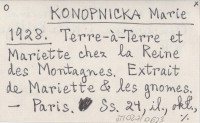 KONOPNICKA Marie
1928. Terre-à-Terre et
Mariette chez la Reine
des Montagnes. Extrait
de Mariette & les gnomes.
— Paris. Ss. 24, il, okł.,